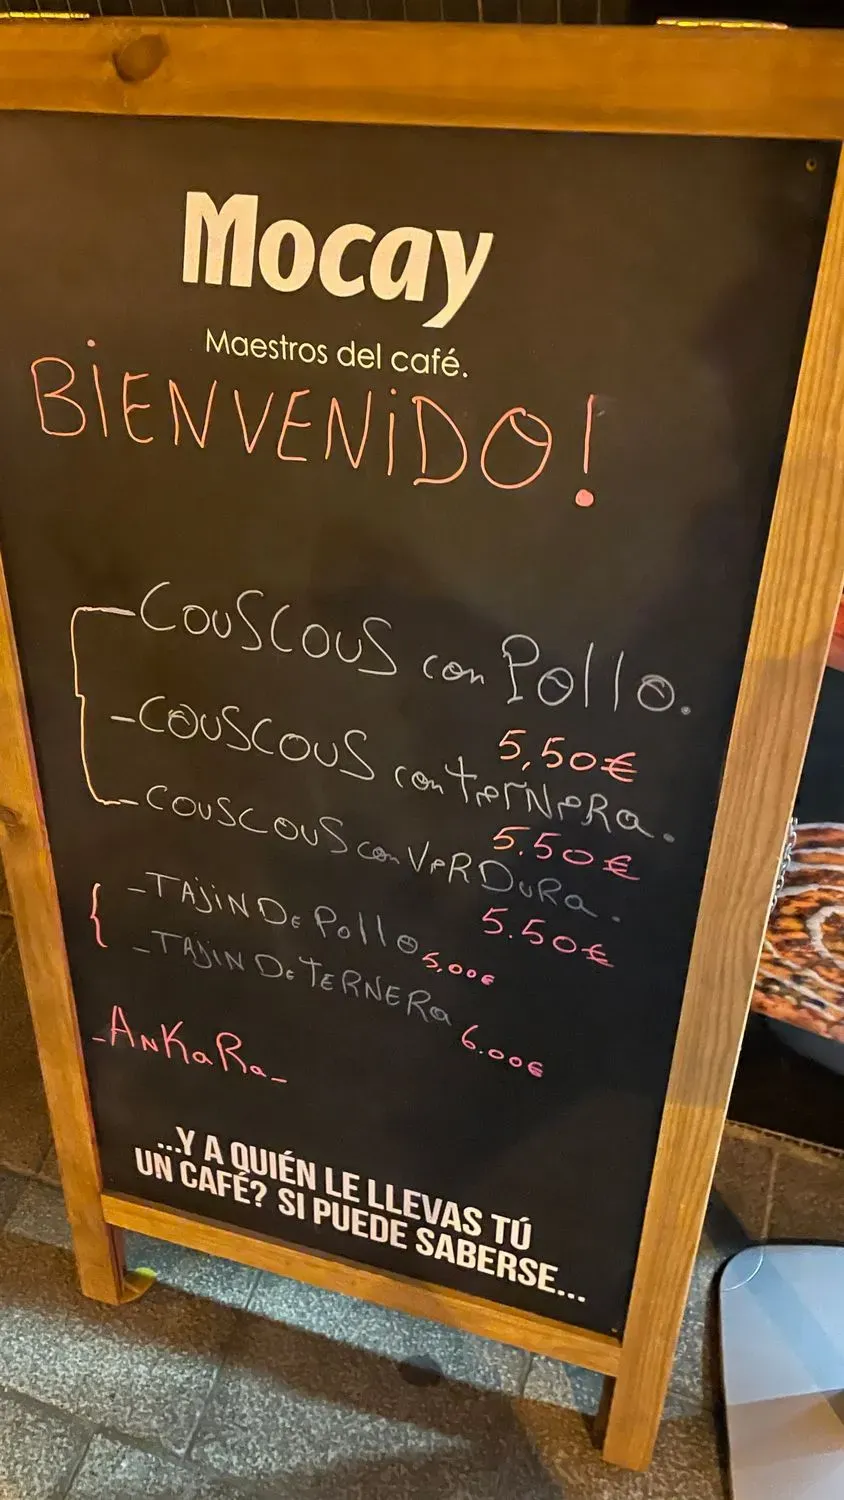 Mocay
Maestros del café.
BiENVENiDO!
-COUSCOUS con Pollo.
5,50€
-COUSCOUS con teRNeRa.
5.50€
-COUSCOUS con VeRDuRa.
5.50€
-TAJiN De Pollo 5,00€
-TAJiN De TeRNERa 6.00€
-AnKaRa-
...Y A QUIÉN LE LLEVAS TÚ
UN CAFÉ? SI PUEDE SABERSE...